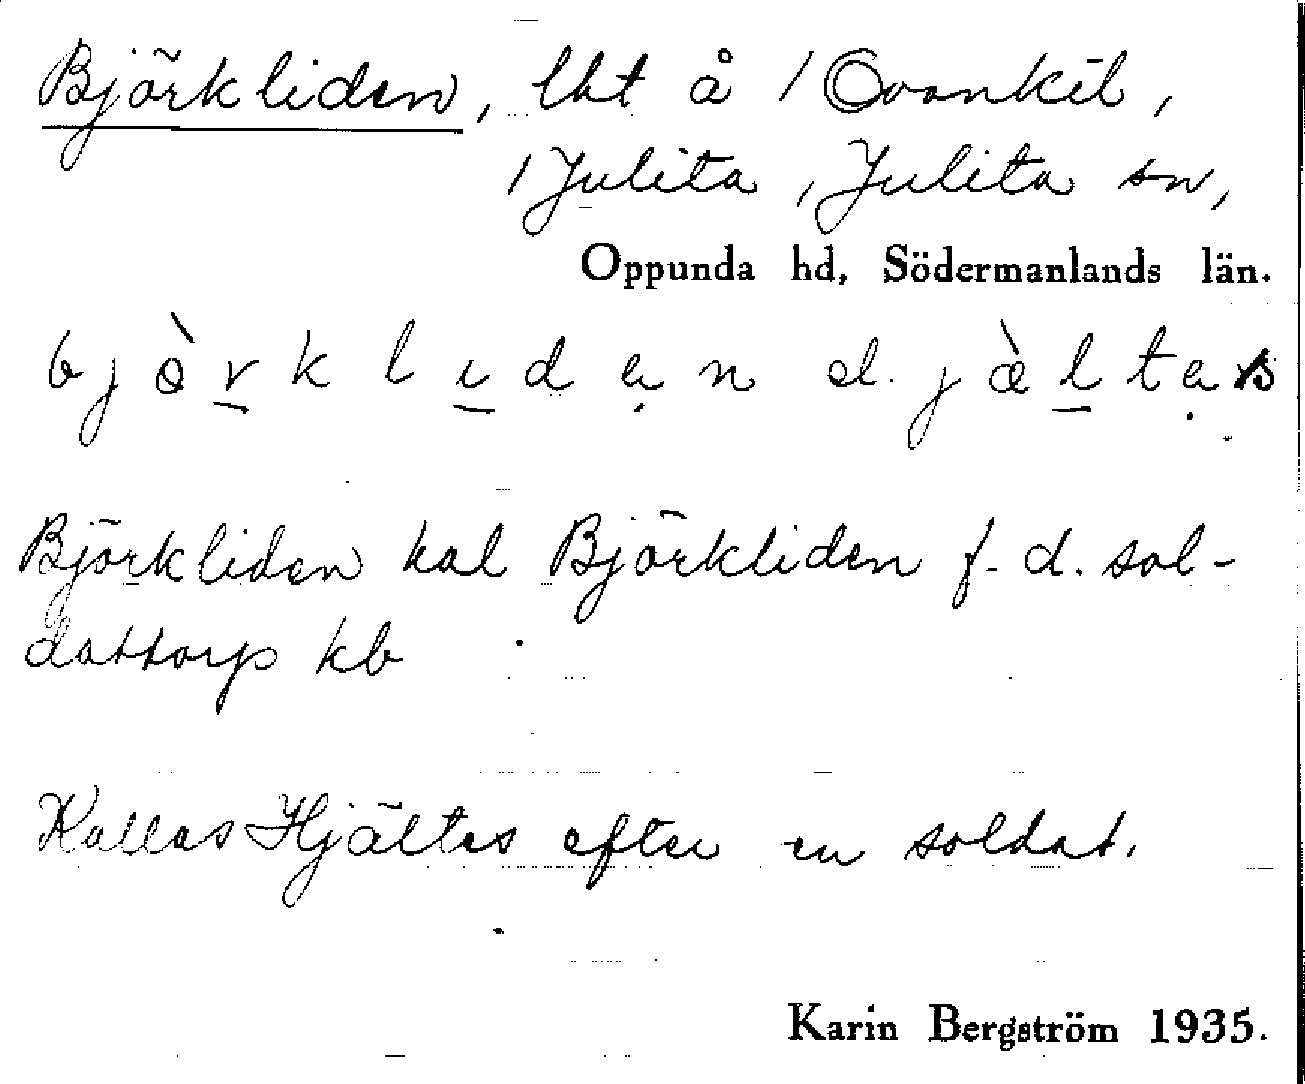 Björkliden, lht å 1 Ovankil,
1 Julita, Julita sn,
Oppunda hd, Södermanlands län.
bjòrkliden el. jæ̀ltes
Björkliden kal Björkliden f. d. sol-
dattorp kb
Kallas Hjältes efter en soldat.
Karin Bergström 1935.